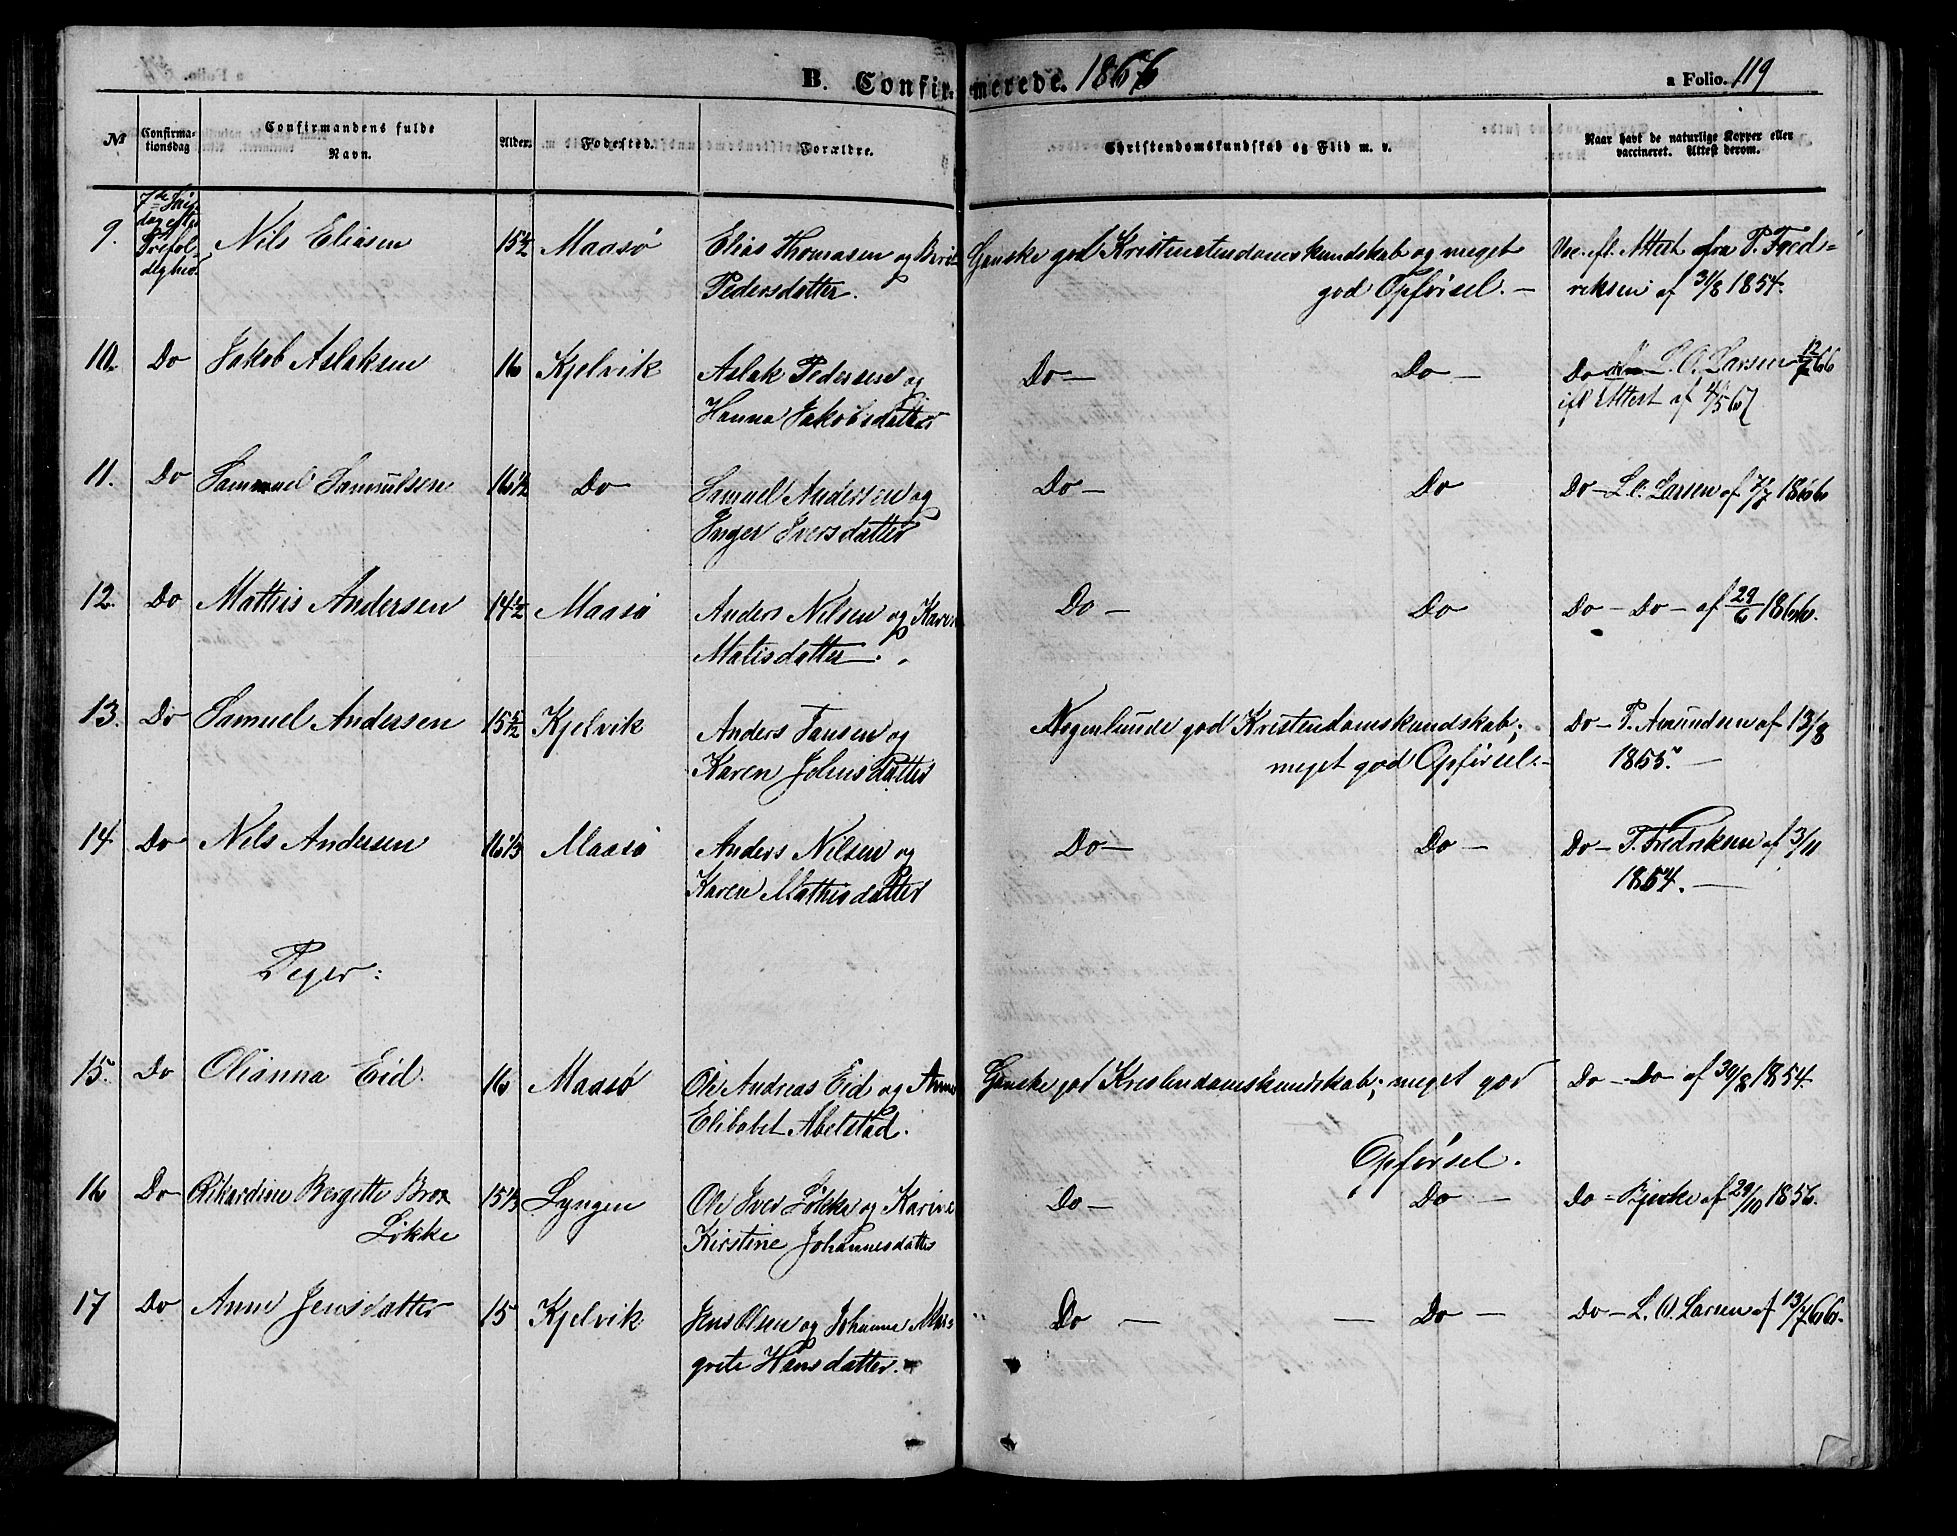 B. Confirmerede. 1866
a Folio. 119
№ Confirmationsdag Confirmandens fulde Navn. Alder. Fødested. Forældre. Christendomskundskab og Flid m. v. Naar havt de naturlige Kopper eller vaccineret. Attest derom.
9. 7de Søndag efter Nils Eliasen 15½ Maasø Elias Thomasen og Berit Ganske god Kristenstendomskundskab og meget Vac. ifl. Attest fra P. Fred-
Pedersdatter. god Opførsel. — riksen af 31/8 1854.
10. Do Jakob Aslaksen 16 Kjelvik Aslak Pedersen og Do — Do — Do L. O. Larsen 12/7 66
Hanna Jakobsdatter ifl Attest af 4/5 67
11. Do Sammuel Samulsen 16½ Do Samuel Andersen og Do — Do Do — L. O. Larsen af 7/7 1866
Inger Iversdatter
12. Do Mathis Andersen 14½ Maasø Anders Nilsen og Karen Do — Do Do — Do — af 29/6 1866.
Matisdatter.
13. Do Samuel Andersen 15½ Kjelvik Anders Fansen og Nogenlunde god Kristendomskundskab; Do — P. Amundsen af 13/8
Karen Johnsdatter meget god Opførsel. — 1855. —
14 Do Nels Andersen 16⅓ Maasø Anders Nilsen og Do — Do — Do — P. Fredriksen af 3/11
Karen Mathisdatter 1854. —
Piger:
15. Do Olianna Eid. 16 Maasø Ole Andreas Eid og Anne Ganske god Kristendomskundskab; meget god Do — Do af 30/8 1854.
Elisabet Abelstad. Opførsel.
16 Do Rikardine Bergette Brox 15⅓ Lyngen Ole Iver Løkke og Karine Do — Do — Do — Bjerke af 29/10 1856.
Løkke Kirstine Johannesdatter
17 Do Anne Jensdatter 15 Kjelvik Jens Olsen og Johanne Mar- Do — — Do — Do — L. O. Larsen af 13/7 66.
grete Hansdatter.